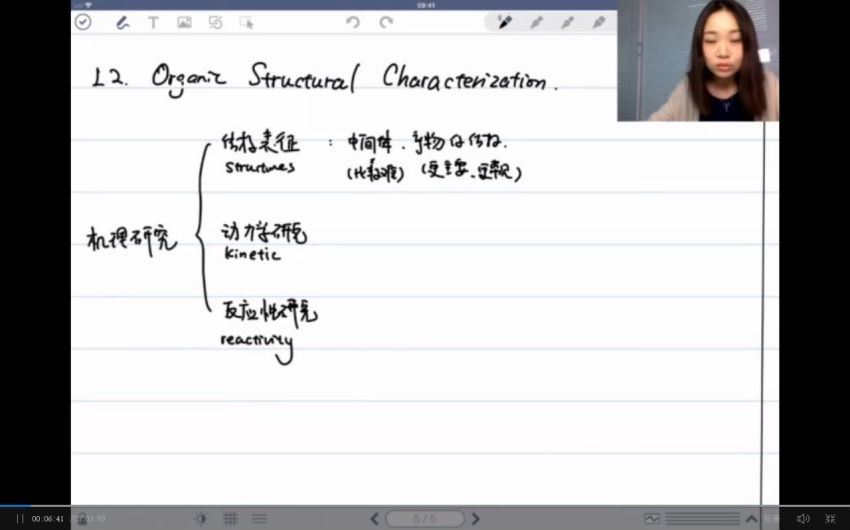 09:41
L2. Organic Structural Characterization.
结构表征 : 中间体、产物的结构.
structures
动力学研究
kinetic
机理研究
反应性研究
reactivity
5/5
00:06:41